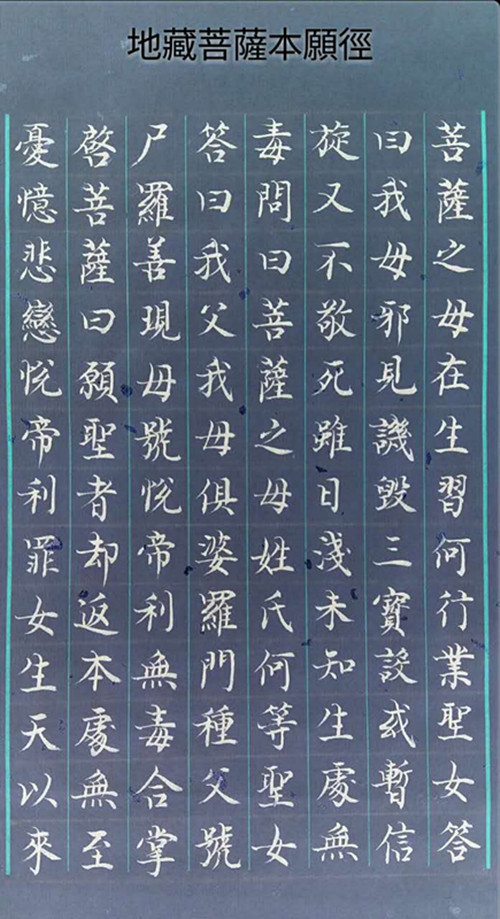 地藏菩薩本願徑
菩薩之母在生習何行業聖女答
曰我母邪見譏毀三寶設或暫信
旋又不敬死雖日淺未知生處無
毒問曰菩薩之母姓氏何等聖女
答曰我父我母俱婆羅門種父號
尸羅善現母號悅帝利無毒合掌
啓菩薩曰願聖者却返本處無至
憂憶悲戀悅帝利罪女生天以來